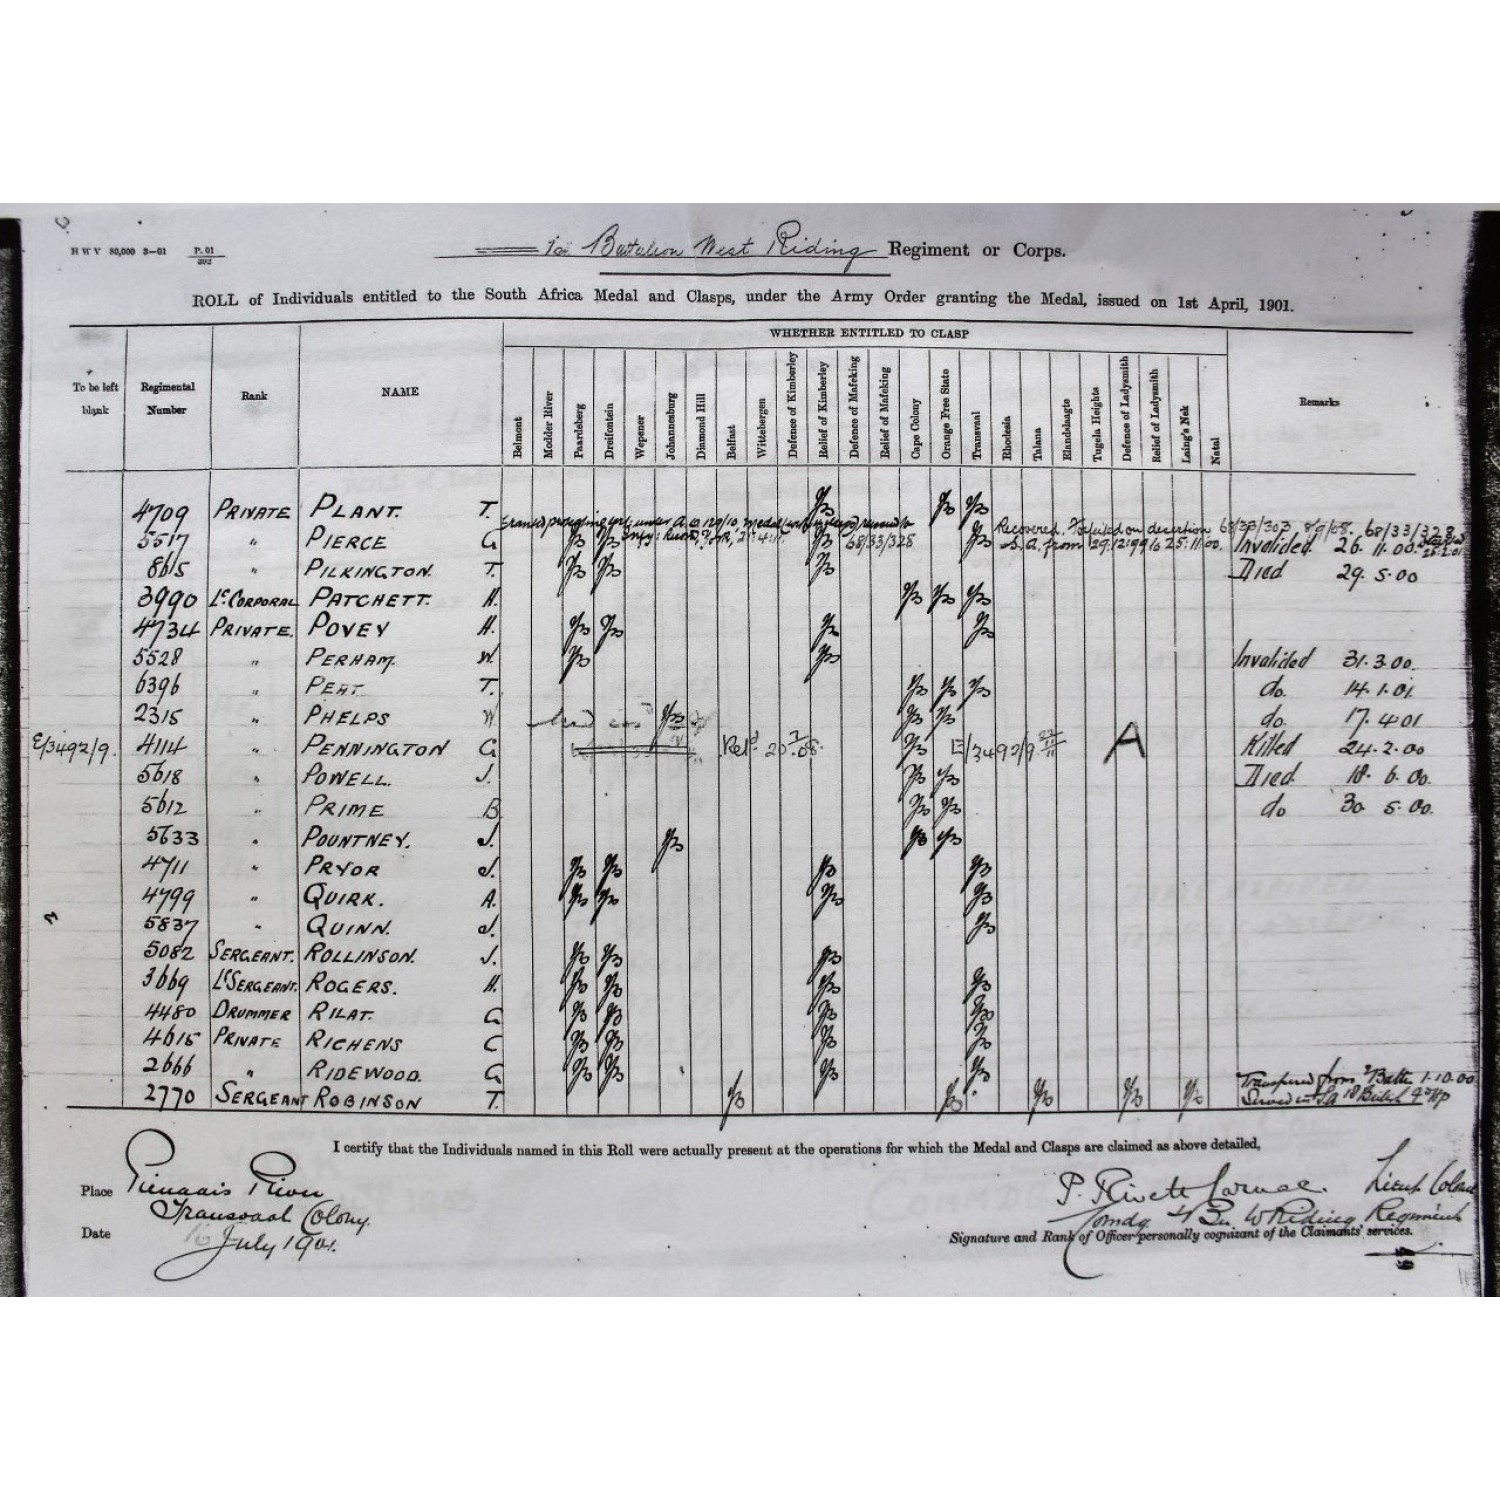 H W V 80,000 3—01 P. 01 / 392
1st Battalion West Riding Regiment or Corps.
ROLL of Individuals entitled to the South Africa Medal and Clasps, under the Army Order granting the Medal, issued on 1st April, 1901.
WHETHER ENTITLED TO CLASP
To be left blank Regimental Number Rank NAME Belmont Modder River Paardeberg Dreifontein Wepener Johannesburg Diamond Hill Belfast Wittebergen Defence of Kimberley Relief of Kimberley Defence of Mafeking Relief of Mafeking Cape Colony Orange Free State Transvaal Rhodesia Talana Elandslaagte Tugela Heights Defence of Ladysmith Relief of Ladysmith Laing's Nek Natal Remarks
4709 PRIVATE PLANT. T. Yes Yes Yes
under A.O. 129/10, medal Recovered. Forfeited on desertion 68/33/303, 8/9/08. 68/33/328
5517 " PIERCE G Yes Yes Yes 68/33/328 Yes S.A. from 29.12.99 to 25.11.00. Invalided 26. 11. 00.
8615 " PILKINGTON. T. Yes Yes Yes Died 29. 5. 00
3990 Lce CORPORAL PATCHETT. H. Yes Yes Yes
4734 PRIVATE. POVEY H. Yes Yes Yes Yes
5528 " PERHAM. W. Yes Yes Invalided 31. 3. 00.
6396 " PEAT T. Yes Yes Yes do. 14. 1. 01.
2315 " PHELPS W Yes Yes Yes do. 17. 4 01
E/3492/9. 4114 " PENNINGTON G Yes E/3492/9 A Killed 24. 2. 00
5618 " POWELL. J. Yes Yes Died 18. 6. 00.
5612 " PRIME B Yes Yes do 30 5. 00.
5633 " POUNTNEY. J. Yes Yes Yes
4711 " PRYOR J. Yes Yes Yes Yes
4799 " QUIRK. A. Yes Yes Yes Yes
5837 " QUINN. J. Yes
5082 SERGEANT. ROLLINSON. J. Yes Yes Yes
3669 Lce SERGEANT. ROGERS. H. Yes Yes Yes Yes
4480 DRUMMER RILAT. G Yes Yes Yes Yes
4615 PRIVATE RICHENS C Yes Yes Yes Yes
2666 " RIDEWOOD. G Yes Yes Yes Yes Transferred from 2 Battn 1.10.00
2770 SERGEANT ROBINSON T. Yes Yes Yes Yes Yes Served in SA
I certify that the Individuals named in this Roll were actually present at the operations for which the Medal and Clasps are claimed as above detailed,
Place Pienaars River
Transvaal Colony.
Date 16 July 1901.
P. Rivett Carnac. Lieut Colonel
Comdg 1 Bn W Riding Regiment
Signature and Rank of Officer personally cognizant of the Claimants' services.